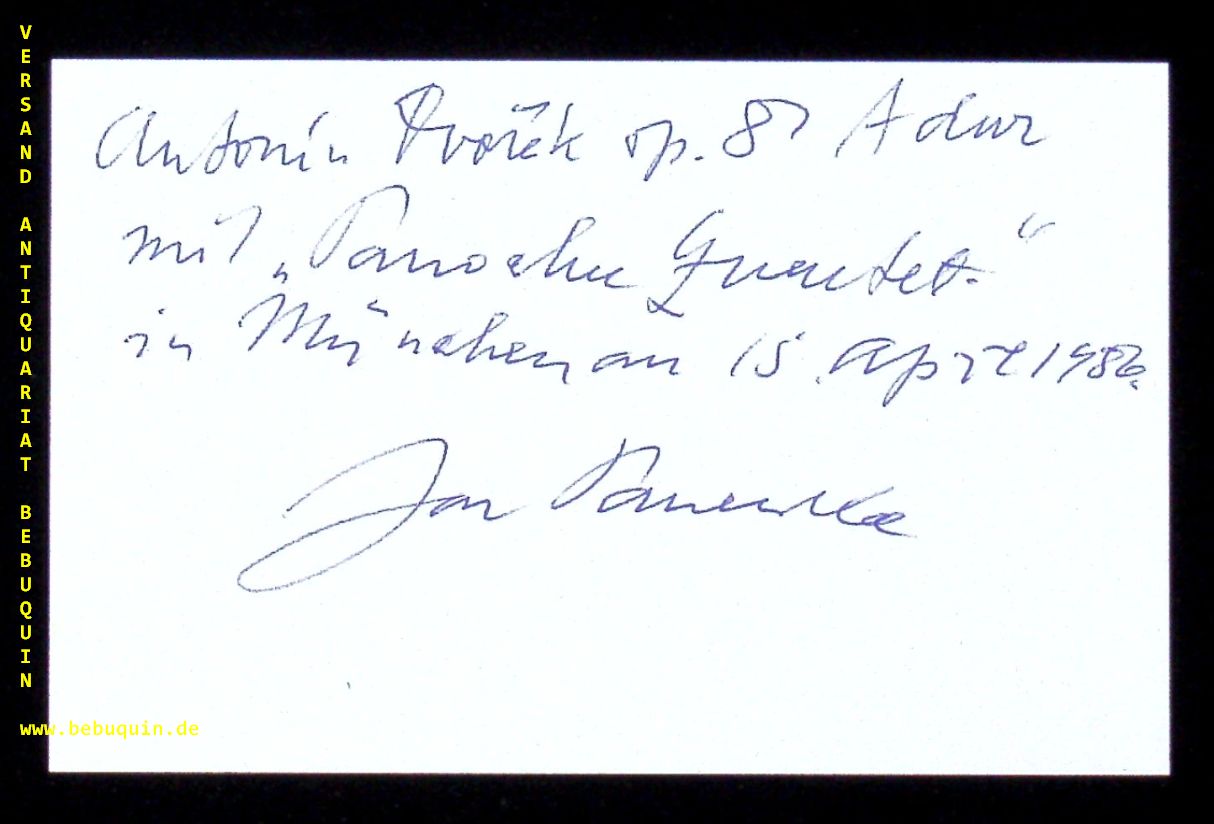 Antonín Dvořák op. 81 A dur
mit „Panocha Quartet“
in München am 15. April 1986.
Jan Panenka
VERSAND ANTIQUARIAT BEBUQUIN
www.bebuquin.de